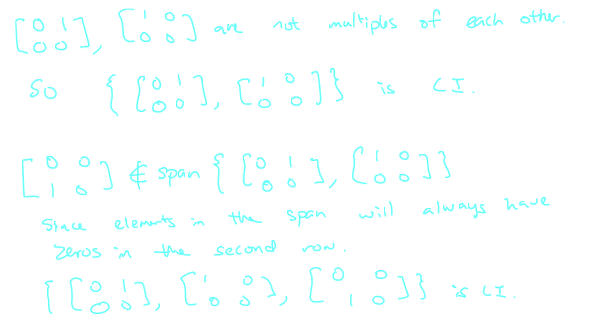 [0 1; 0 0], [1 0; 0 0] are not multiples of each other.
So { [0 1; 0 0], [1 0; 0 0] } is LI.
[0 0; 1 0] ∉ span { [0 1; 0 0], [1 0; 0 0] }
Since elements in the span will always have
zeros in the second row.
{ [0 1; 0 0], [1 0; 0 0], [0 0; 1 0] } is LI.